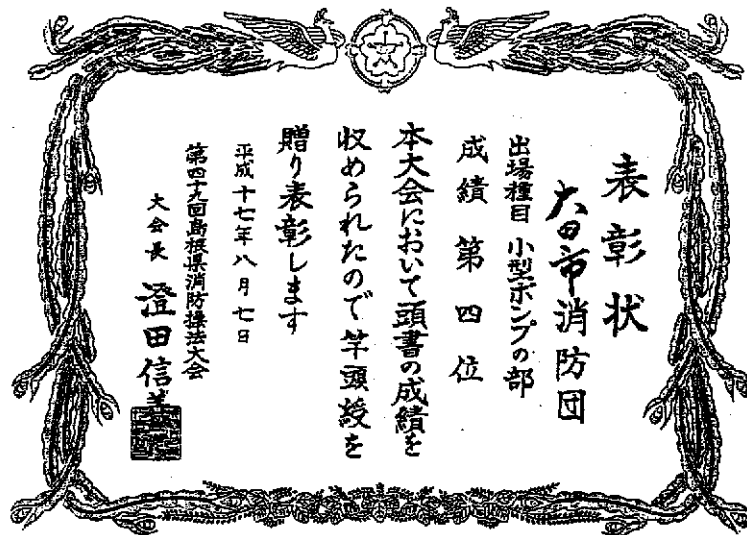 表彰状
大田市消防団
出場種目 小型ポンプの部
成績 第四位
本大会において頭書の成績を
収められたので竿頭綬を
贈り表彰します
平成十七年八月七日
第四十九回島根県消防操法大会
大会長 澄田信義